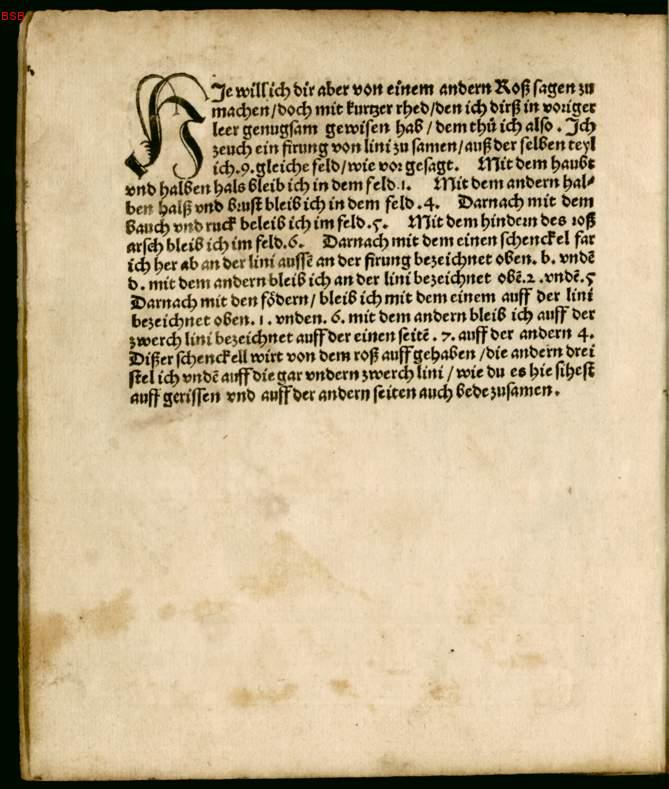 BSB
HJe will ich dir aber von einem andern Roß sagen zu
machen/doch mit kurtzer rhed/den ich dirß in voriger
leer genugsam gewisen hab / dem thů ich also . Jch
zeuch ein firung von lini zu samen/auß der selben teyl
ich .9. gleiche feld/wie vor gesagt. Mit dem haubt
vnd halben hals bleib ich in dem feld .1. Mit dem andern hal⸗
ben halß vnd brust bleib ich in dem feld .4. Darnach mit dem
bauch vnd ruck beleib ich im feld .5. Mit dem hindern des roß
arsch bleib ich im feld.6. Darnach mit dem einen schenckel far
ich her ab an der lini aussē an der firung bezeichnet oben. b. vndē
d. mit dem andern bleib ich an der lini bezeichnet obē.2 .vndē.5
Darnach mit den födern/ bleib ich mit dem einem auff der lini
bezeichnet oben. 1. vnden. 6. mit dem andern bleib ich auff der
zwerch lini bezeichnet auff der einen seitē . 7. auff der andern 4.
Dißer schenckell wirt von dem roß auff gehaben /die andern drei
stel ich vndē auff die gar vndern zwerch lini / wie du es hie sihest
auff gerissen vnd auff der andern seiten auch bede zusamen .